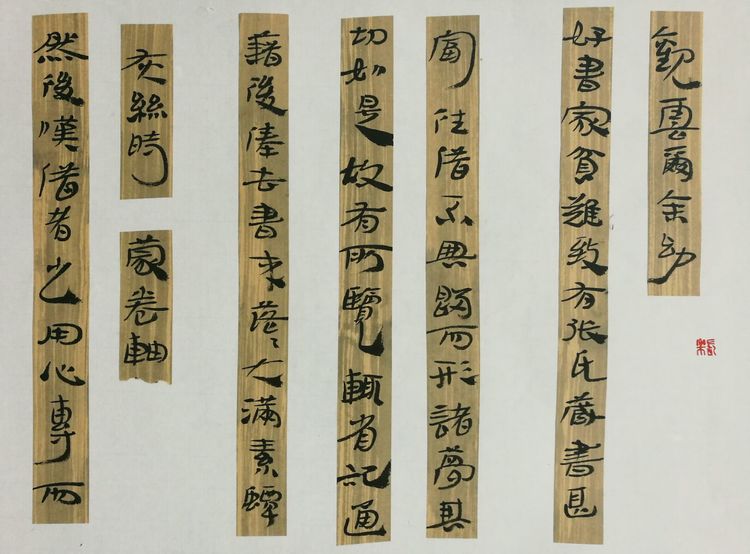 觀雲爾余幼
好書家貧難致有張氏藏書甚
富往借不與歸而形諸夢其
切如是故有所覽輒省記通
藉後俸去書來落々大滿素蟫
灰絲時
蒙卷軸
然後嘆借者之用心專而